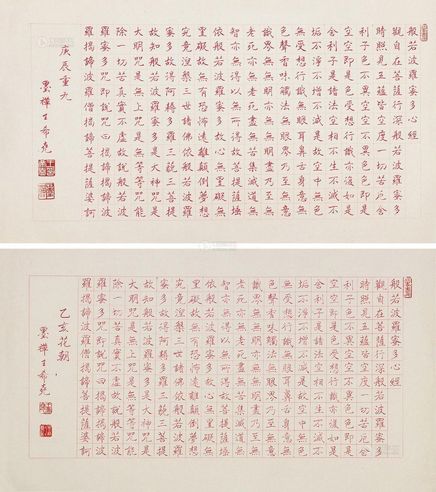 般若波羅蜜多心經
觀自在菩薩行深般若波羅蜜多
時照見五蘊皆空度一切苦厄舍
利子色不異空空不異色色即是
空空即是色受想行識亦復如是
舍利子是諸法空相不生不滅不
垢不淨不增不減是故空中無色
無受想行識無眼耳鼻舌身意無
色聲香味觸法無眼界乃至無意
識界無無明亦無無明盡乃至無
老死亦無老死盡無苦集滅道無
智亦無得以無所得故菩提薩埵
依般若波羅蜜多故心無罣礙無
罣礙故無有恐怖遠離顛倒夢想
究竟涅槃三世諸佛依般若波羅
蜜多故得阿耨多羅三藐三菩提
故知般若波羅蜜多是大神咒是
大明咒是無上咒是無等等咒能
除一切苦真實不虛故說般若波
羅蜜多咒即說咒曰揭諦揭諦波
羅揭諦波羅僧揭諦菩提薩婆訶
庚辰重九
墨樺王希堯
般若波羅蜜多心經
觀自在菩薩行深般若波羅蜜多
時照見五蘊皆空度一切苦厄舍
利子色不異空空不異色色即是
空空即是色受想行識亦復如是
舍利子是諸法空相不生不滅不
垢不淨不增不減是故空中無色
無受想行識無眼耳鼻舌身意無
色聲香味觸法無眼界乃至無意
識界無無明亦無無明盡乃至無
老死亦無老死盡無苦集滅道無
智亦無得以無所得故菩提薩埵
依般若波羅蜜多故心無罣礙無
罣礙故無有恐怖遠離顛倒夢想
究竟涅槃三世諸佛依般若波羅
蜜多故得阿耨多羅三藐三菩提
故知般若波羅蜜多是大神咒是
大明咒是無上咒是無等等咒能
除一切苦真實不虛故說般若波
羅蜜多咒即說咒曰揭諦揭諦波
羅揭諦波羅僧揭諦菩提薩婆訶
乙亥花朝
墨樺王希堯